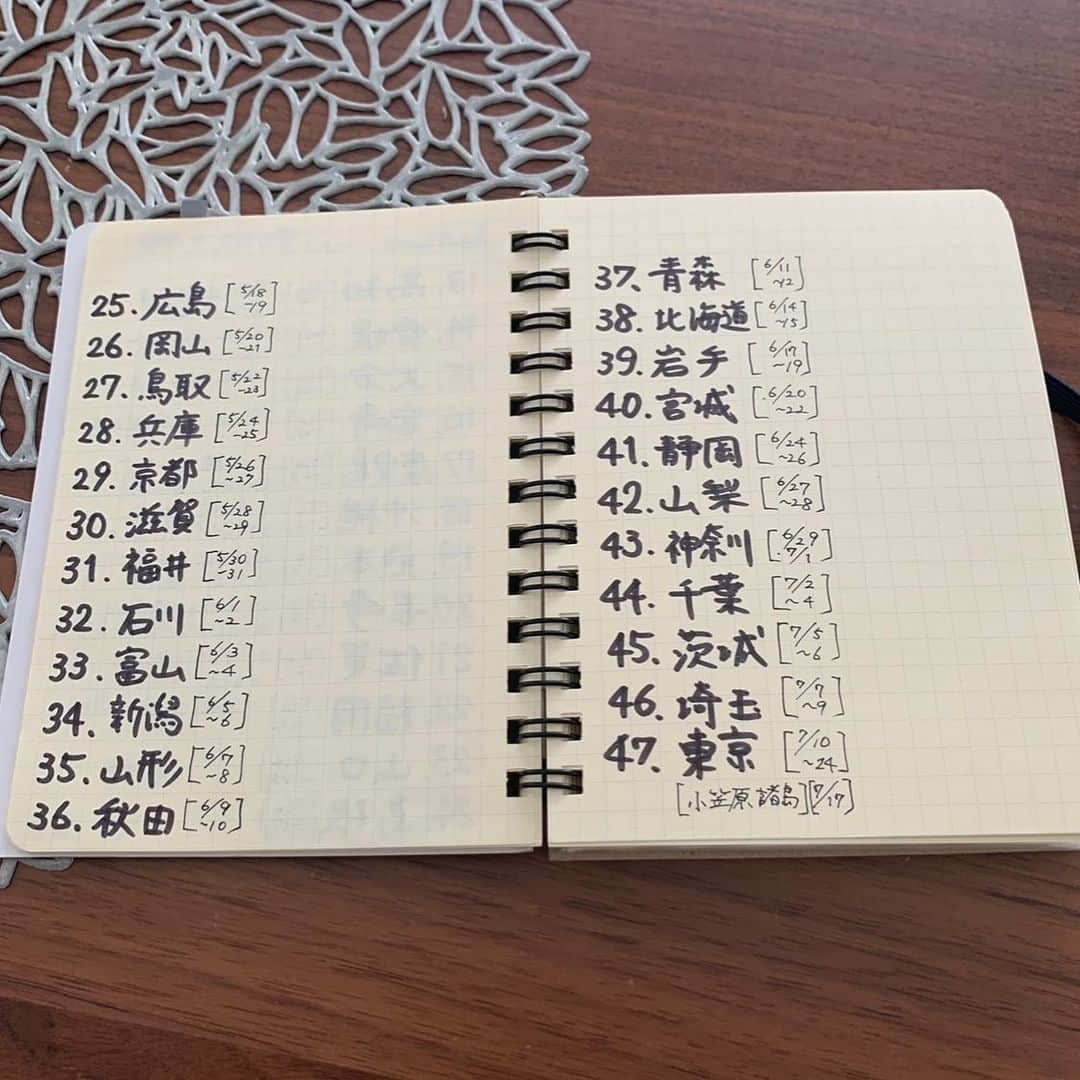 25. 広島 [5/18 ~19]
26. 岡山 [5/20 ~21]
27. 鳥取 [5/22 ~23]
28. 兵庫 [5/24 ~25]
29. 京都 [5/26 ~27]
30. 滋賀 [5/28 ~29]
31. 福井 [5/30 ~31]
32. 石川 [6/1 ~2]
33. 富山 [6/3 ~4]
34. 新潟 [6/5 ~6]
35. 山形 [6/7 ~8]
36. 秋田 [6/9 ~10]
37. 青森 [6/11 ~12]
38. 北海道 [6/14 ~15]
39. 岩手 [6/17 ~19]
40. 宮城 [6/20 ~22]
41. 静岡 [6/24 ~26]
42. 山梨 [6/27 ~28]
43. 神奈川 [6/29 ~7/1]
44. 千葉 [7/2 ~4]
45. 茨城 [7/5 ~6]
46. 埼玉 [7/7 ~9]
47. 東京 [7/10 ~24]
[小笠原諸島][7/17]